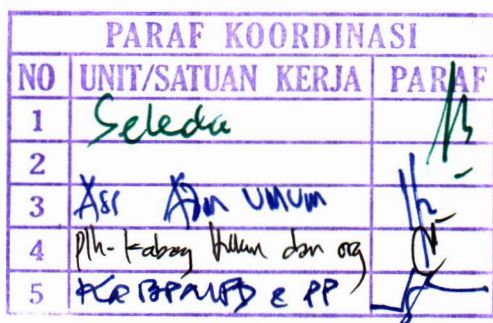 PARAF KOORDINASI
NO UNIT/SATUAN KERJA PARAF
1 Sekda
2
3 Ass Adm UMUM
4 Plh-Kabag Hukum dan org
5 KA BPMPD & PP